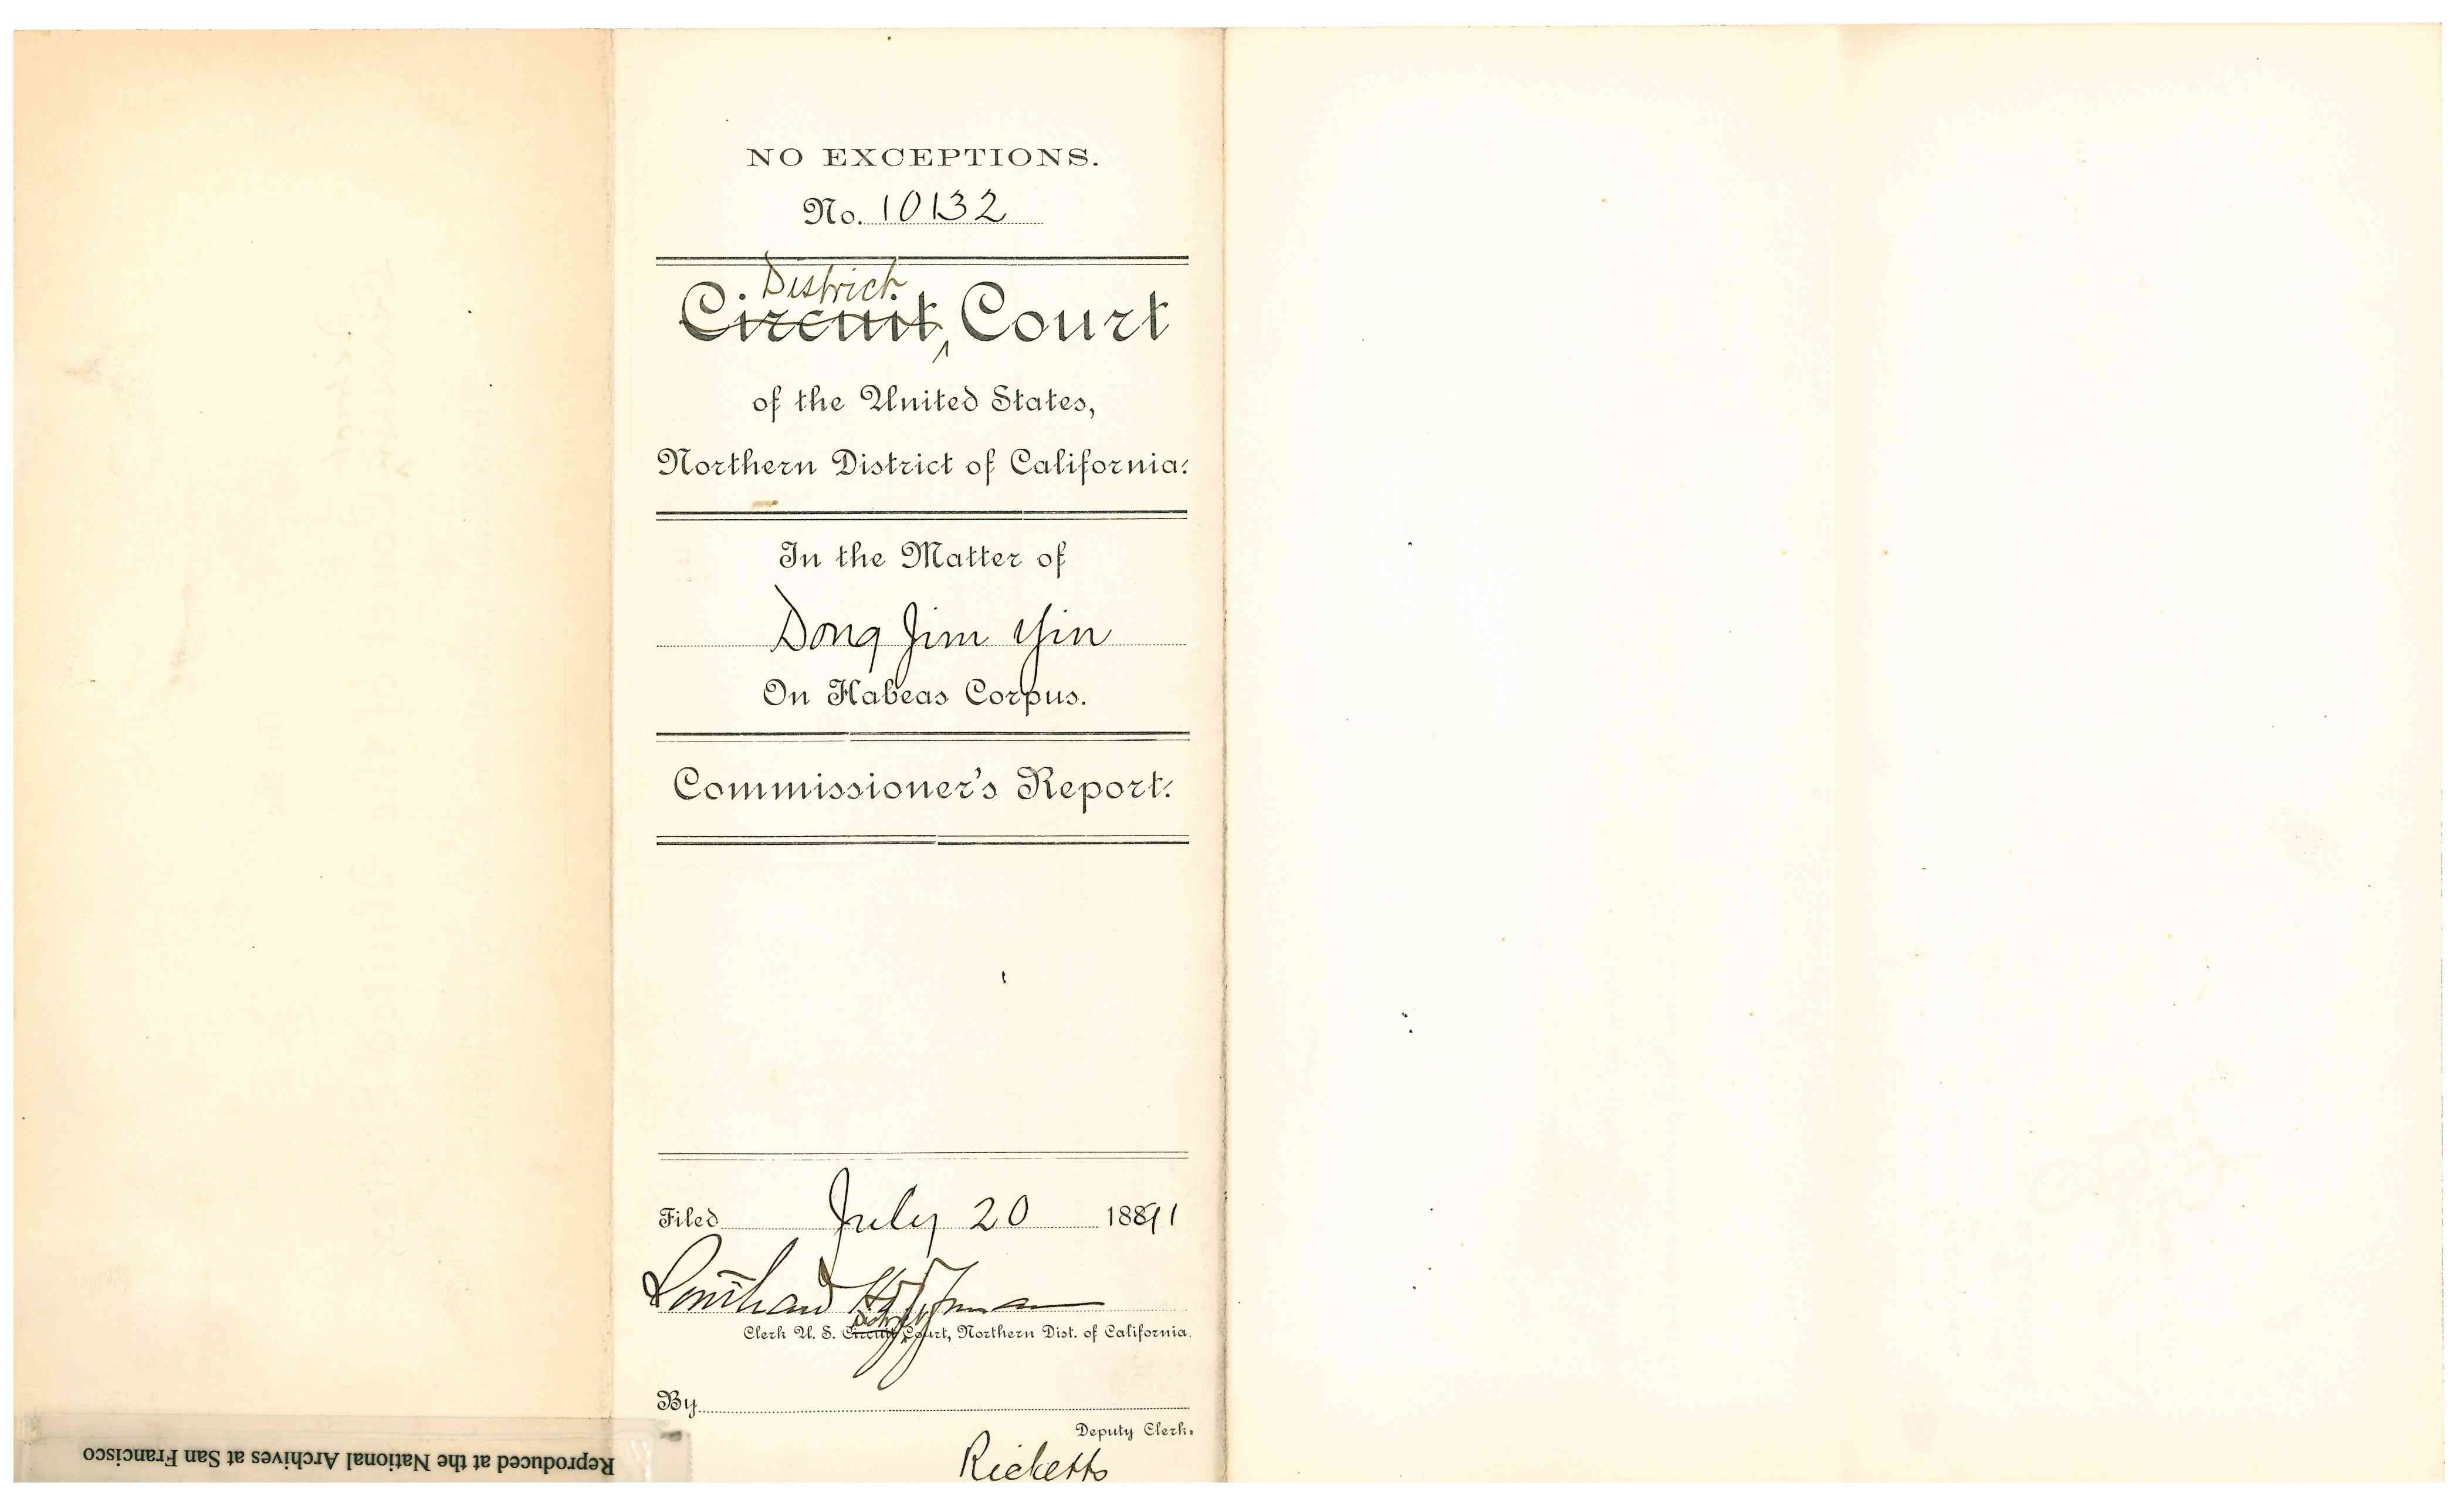 NO EXCEPTIONS.
No. 10132
District
Circuit Court
of the United States,
Northern District of California.
In the Matter of
Dong Jim Yin
On Habeas Corpus.
Commissioner's Report.
Filed July 20 1891
Southard Hoffman
District
Clerk U. S. Circuit Court, Northern Dist. of California.
By
Deputy Clerk.
Ricketts
Reproduced at the National Archives at San Francisco